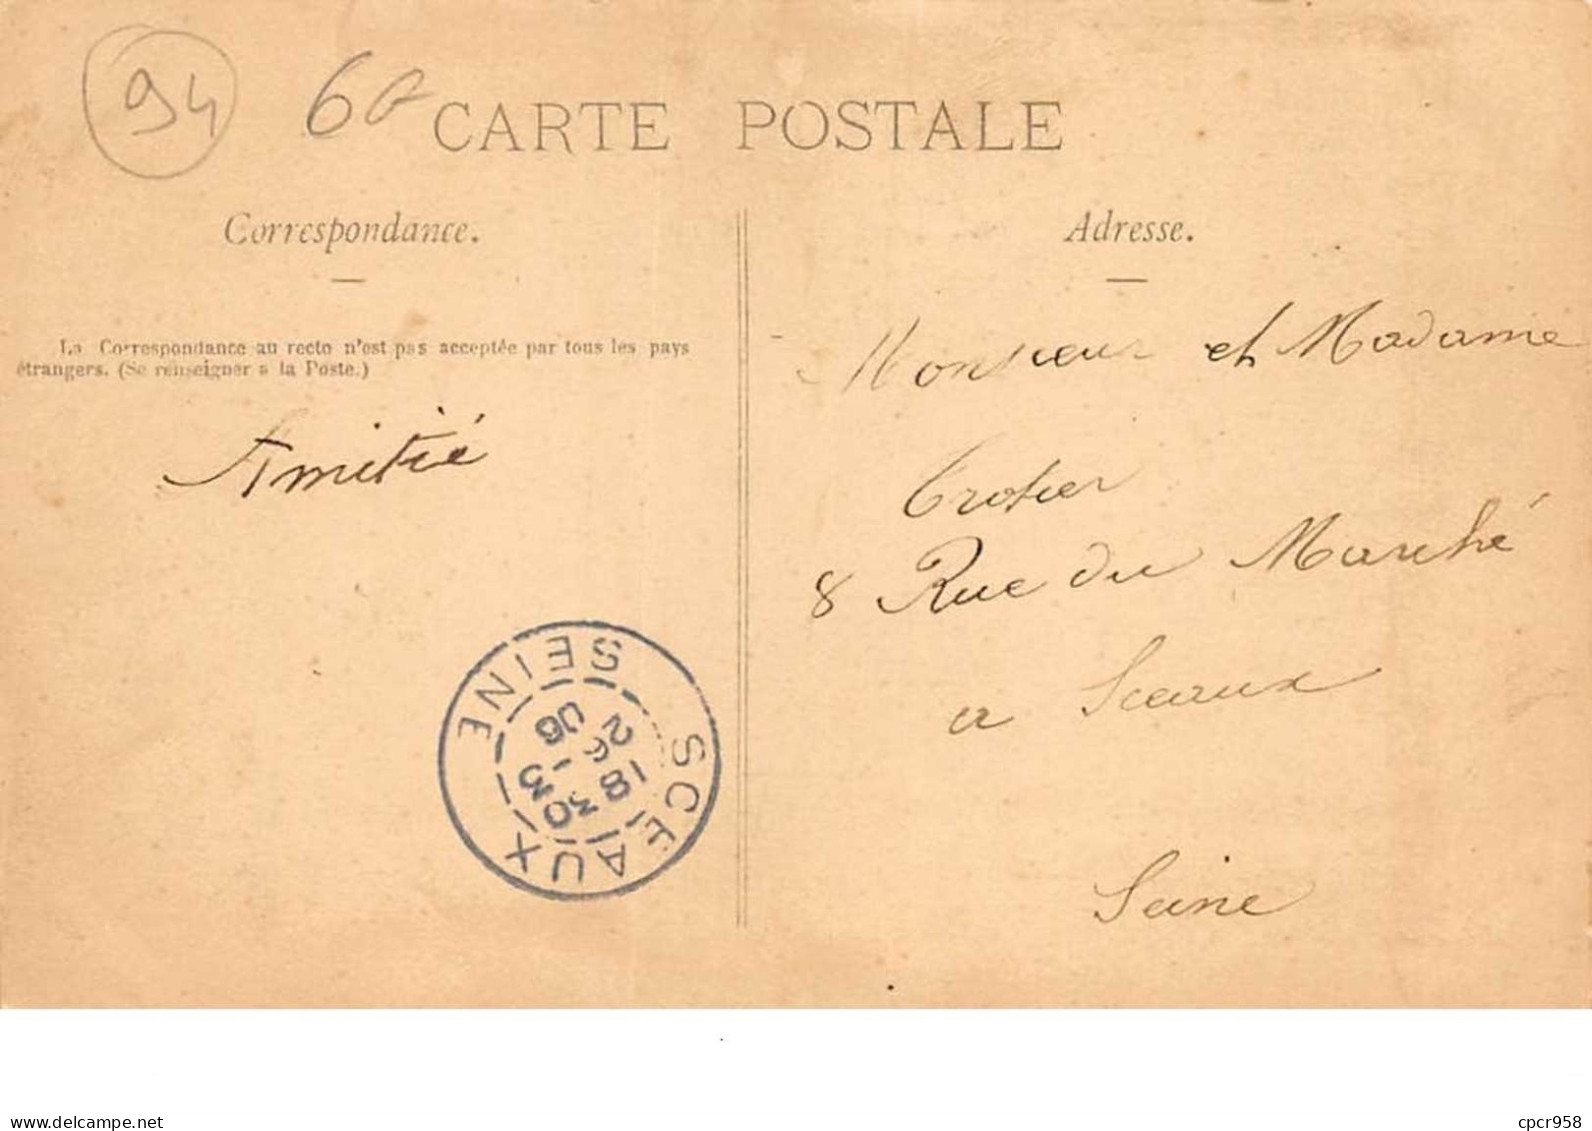 94 60
CARTE POSTALE
Correspondance.
La Correspondance au recto n'est pas acceptée par tous les pays
étrangers. (Se renseigner a la Poste.)
Amitié
Adresse.
Monsieur et Madame
Trotier
8 Rue du Marché
a Sceaux
Seine
SCEAUX SEINE
18 30
26 - 3
06
www.delcampe.net
cpcr958